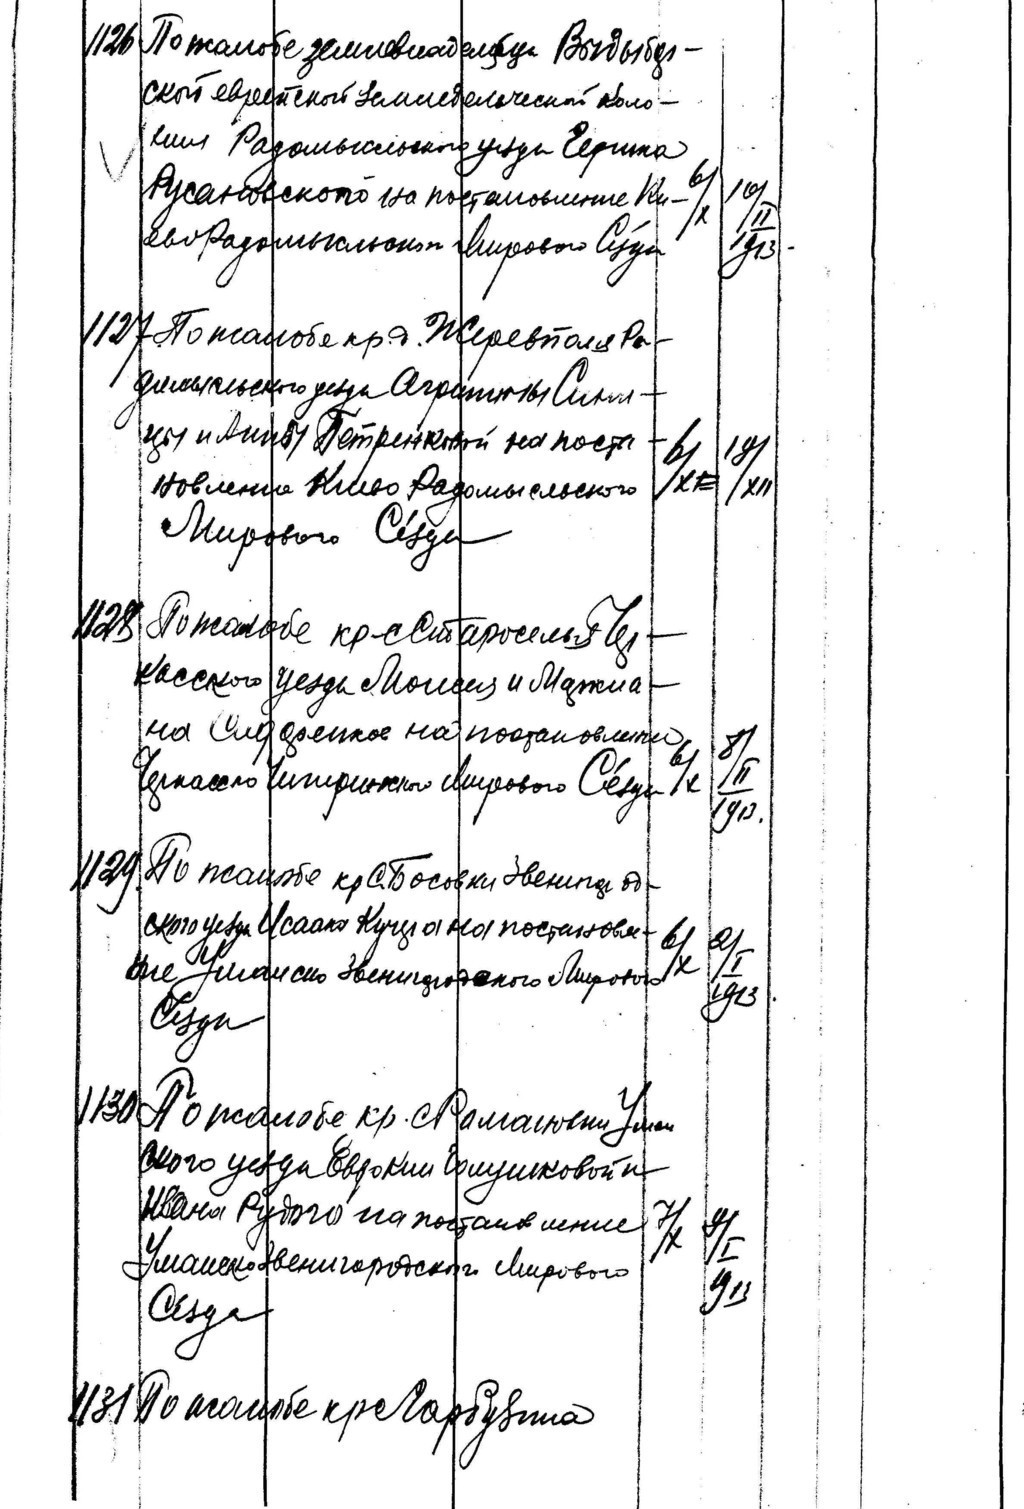 1126 По жалобе землевладельца Выдыбор-
ской еврейской земледельческой коло-
нии Радомысльского уезда Гершка
Русановского на постановление Ки- 6/X 10/II 1913.
ево Радомысльского Мирового Сезда
1127 По жалобе кр. д. Жеревполя Ра-
домысльского уезда Агрипины
и Анны Петренковой на поста- 6/XII 19/XII
новление Киево Радомысльского
Мирового Сезда
1128 По жалобе кр-с Староселья Чер-
касского уезда Моисея и
на на постановление
Черкасско Чигиринского Мирового Сезда 6/X 8/II 1913.
1129. По жалобе кр С. Босовки Звенигород-
ского уезда Исаака на постановле- 6/X 2/I 1913.
ние Уманско Звенигородского Мирового
Сезда
1130 По жалобе кр. с Романовки Уман
ского уезда Евдокии Галушковой и
Ивана Рудого на постановление 7/X 9/I 1913
Уманско Звенигородского Мирового
Сезда
1131 По жалобе кр с Гарбузина